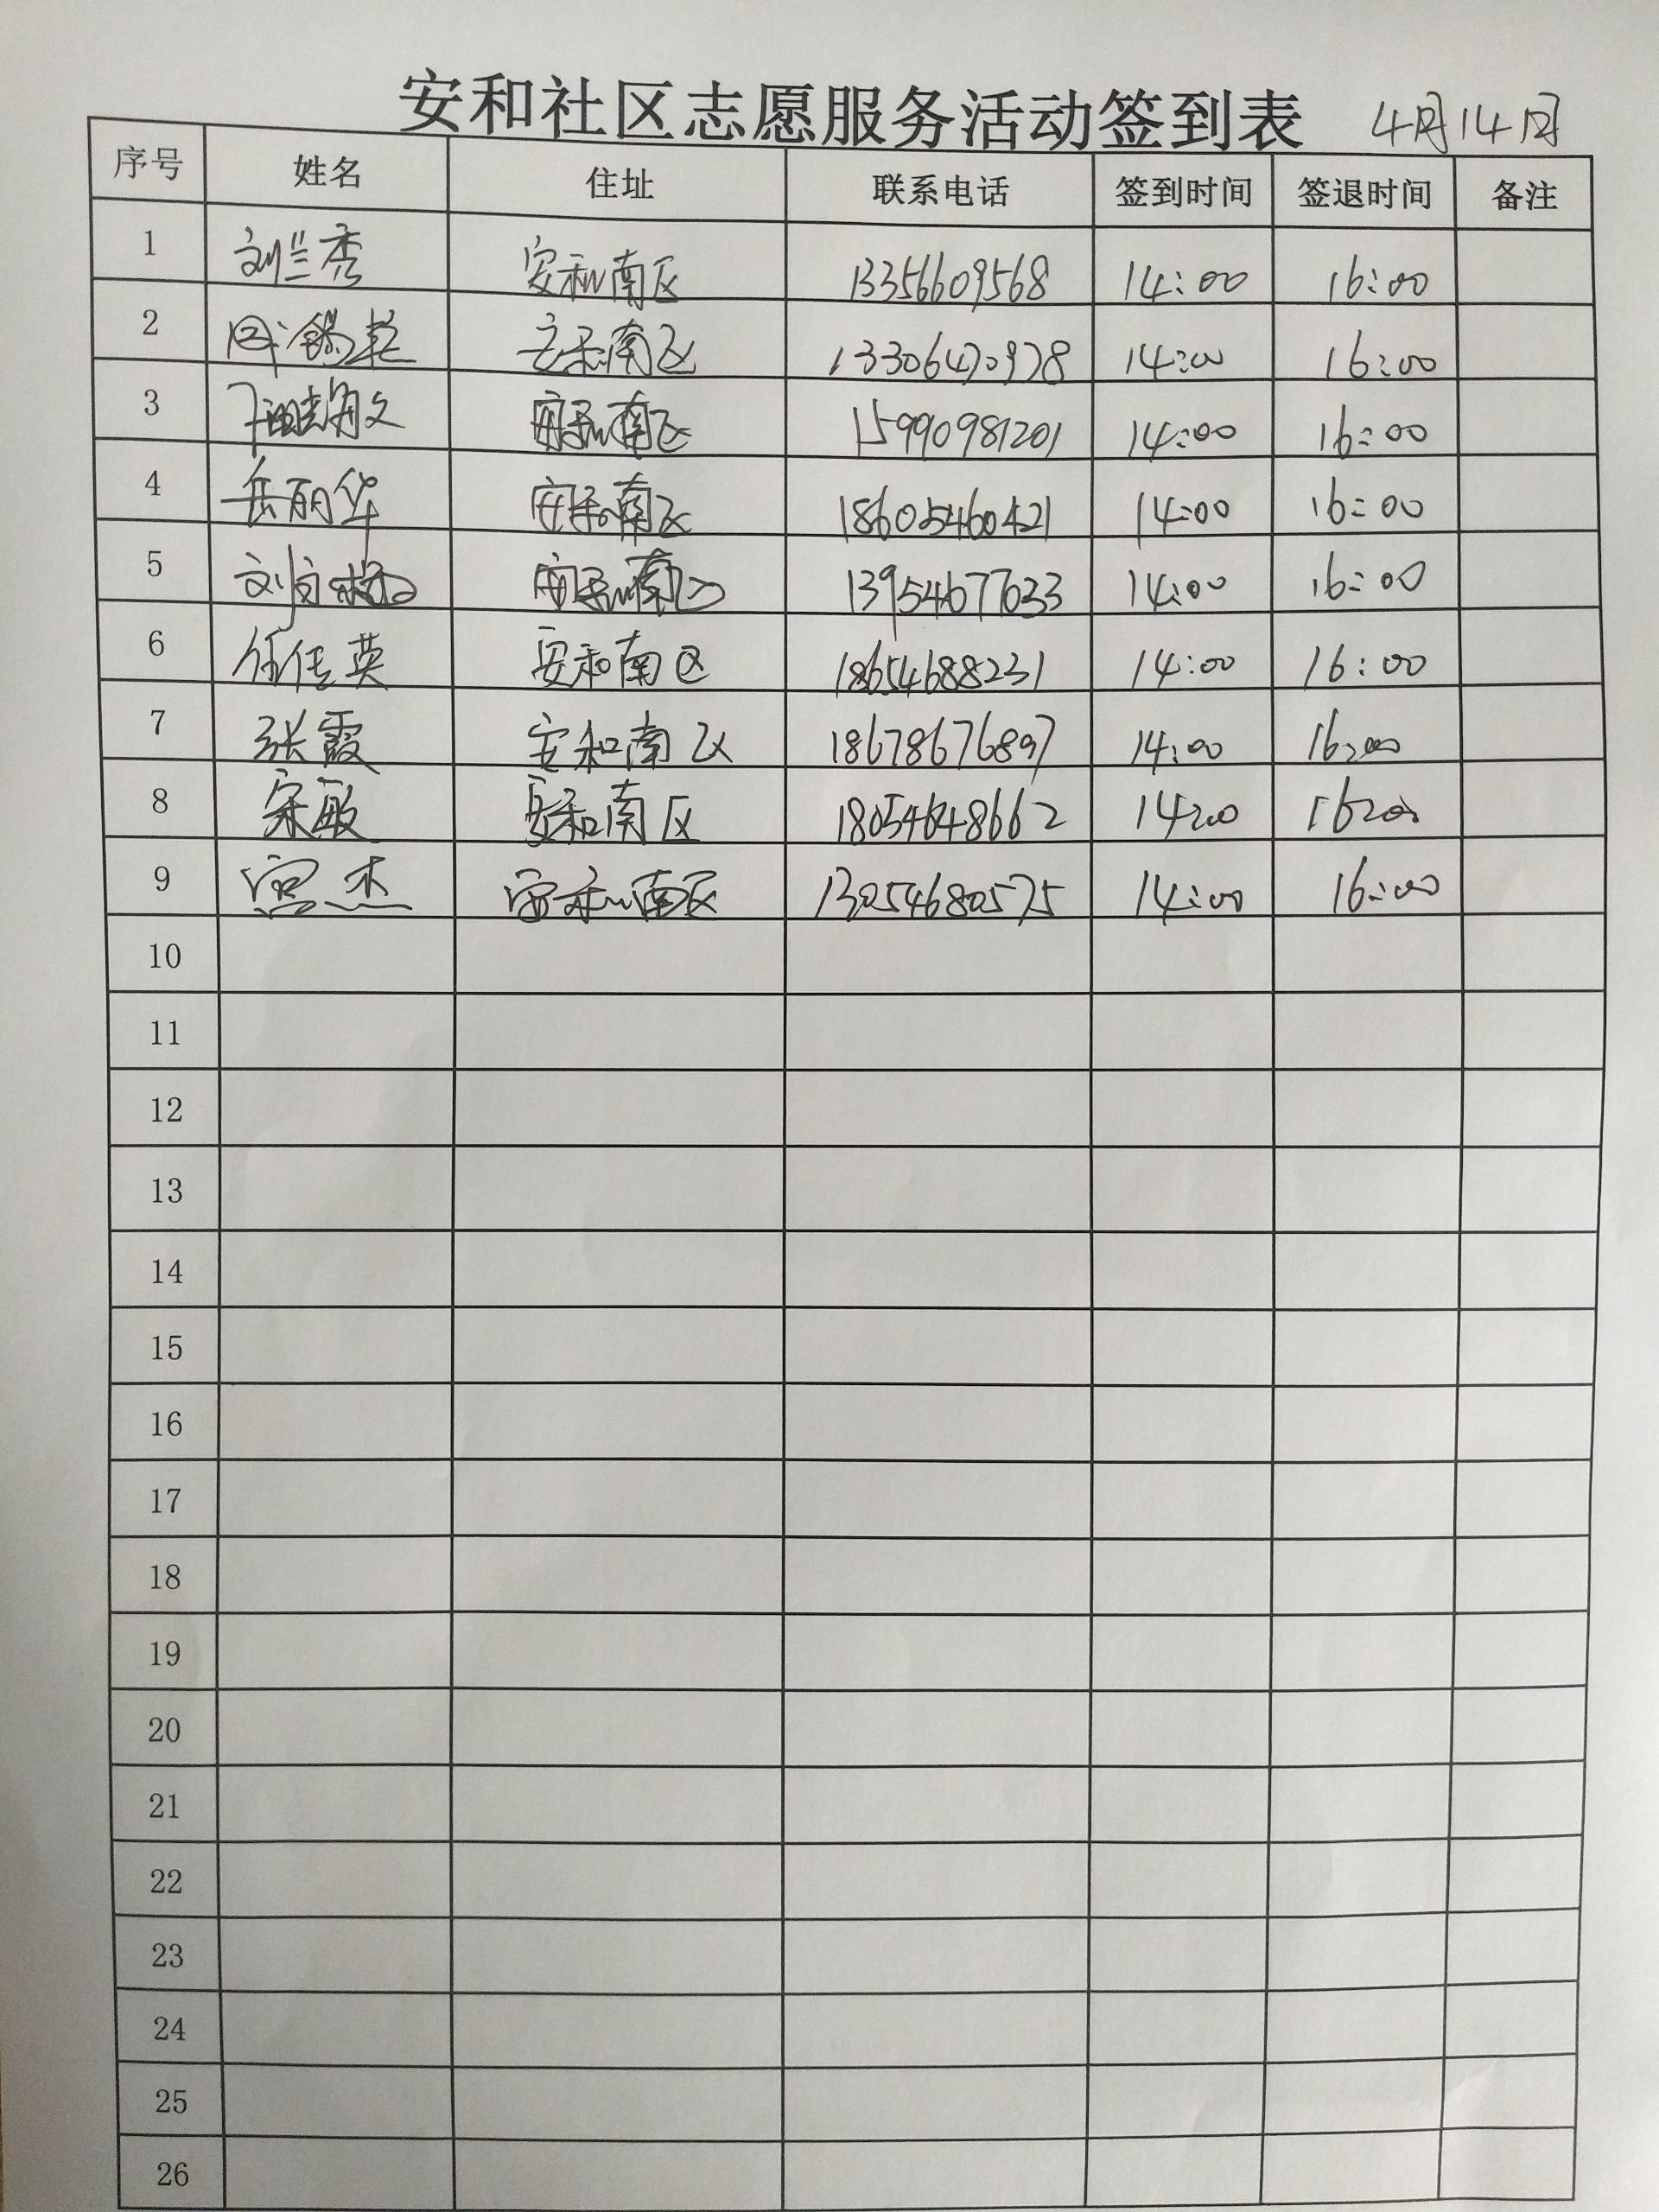 安和社区志愿服务活动签到表 4月14日
序号 姓名 住址 联系电话 签到时间 签退时间 备注
1 刘兰秀 安和南区 13356609568 14:00 16:00
2 安和南区 13306470978 14:00 16:00
3 安和南区 15990981201 14:00 16:00
4 岳丽华 安和南区 18605460421 14:00 16:00
5 安和南区 13954677633 14:00 16:00
6 任佳英 安和南区 18654688231 14:00 16:00
7 张霞 安和南区 18678676897 14:00 16:00
8 宋敏 安和南区 18054648662 14:00 16:00
9 安和南区 13054680575 14:00 16:00
10
11
12
13
14
15
16
17
18
19
20
21
22
23
24
25
26